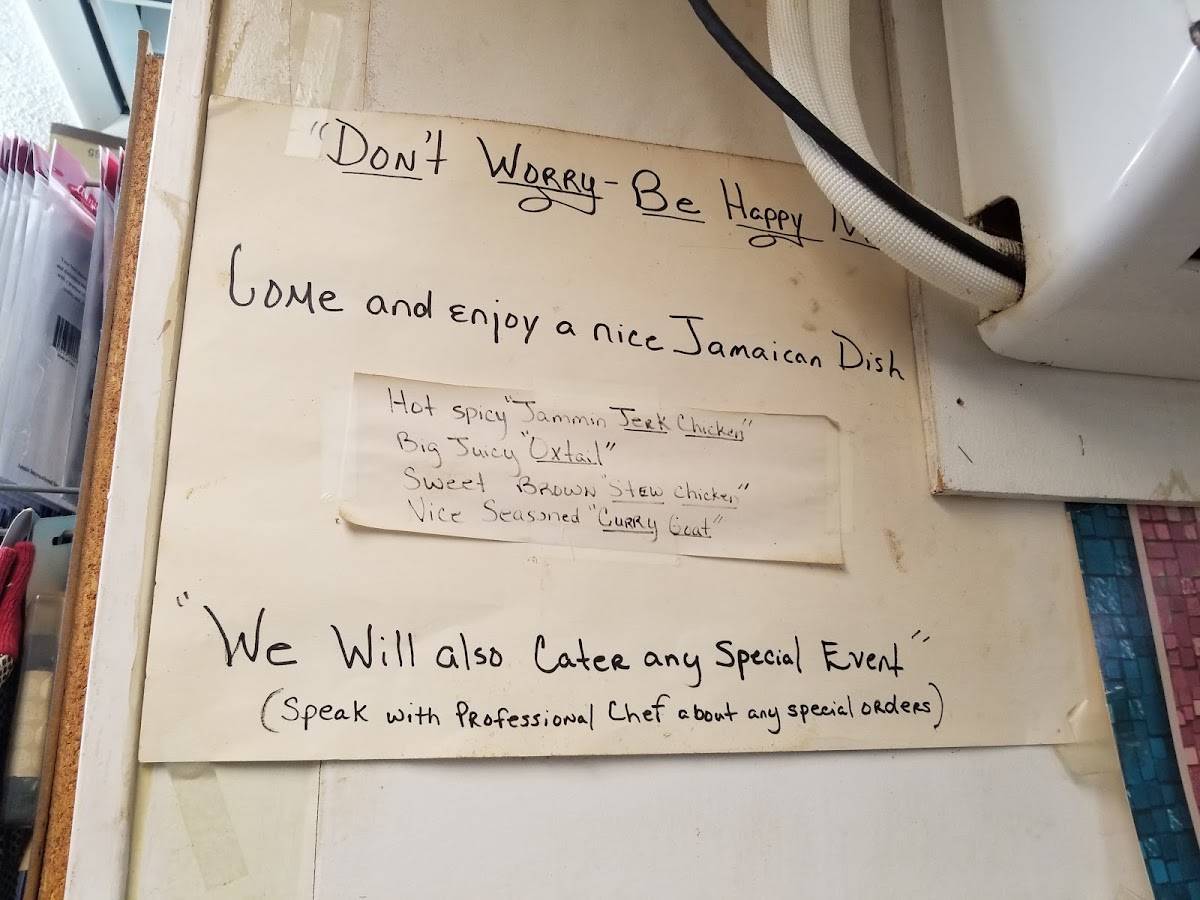 "Don't Worry - Be Happy
Come and enjoy a nice Jamaican Dish
Hot spicy "Jammin Jerk Chicken"
Big Juicy "Oxtail"
Sweet Brown "Stew chicken"
Nice Seasoned "Curry Goat"
"We Will also Cater any Special Event"
(Speak with Professional Chef about any special orders)